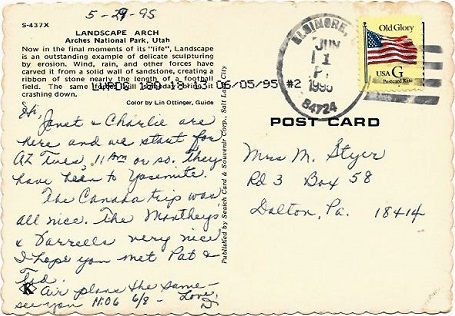 5-29-95
S-437X
LANDSCAPE ARCH
Arches National Park, Utah
Now in the final moments of its "life", Landscape
is an outstanding example of delicate sculpturing
by erosion. Wind, rain, and other forces have
carved it from a solid wall of sandstone, creating a
ribbon of stone nearly the length of a football
field. The same
crashing down.
06/05/95 #2
Color by Lin Ottinger, Guide
Hi,
Janet & Charlie are
here and we start for
AZ Tues, 11 AM or so. They
have been to Yosemite.
The Canada trip was
all nice. The
& Darrells very nice
I hope you met Pat &
Ted.
K Air plans the same -
see you 11:06 6/8 - Love,
D
Published by Smith Card & Souvenir Corp., Salt Lake City
ELSINORE,
JUN
1
1995
84724
Old Glory
USA G
Postcard Rate
POST CARD
Mrs M. Styer
Rd 3 Box 58
Dalton, Pa. 18414